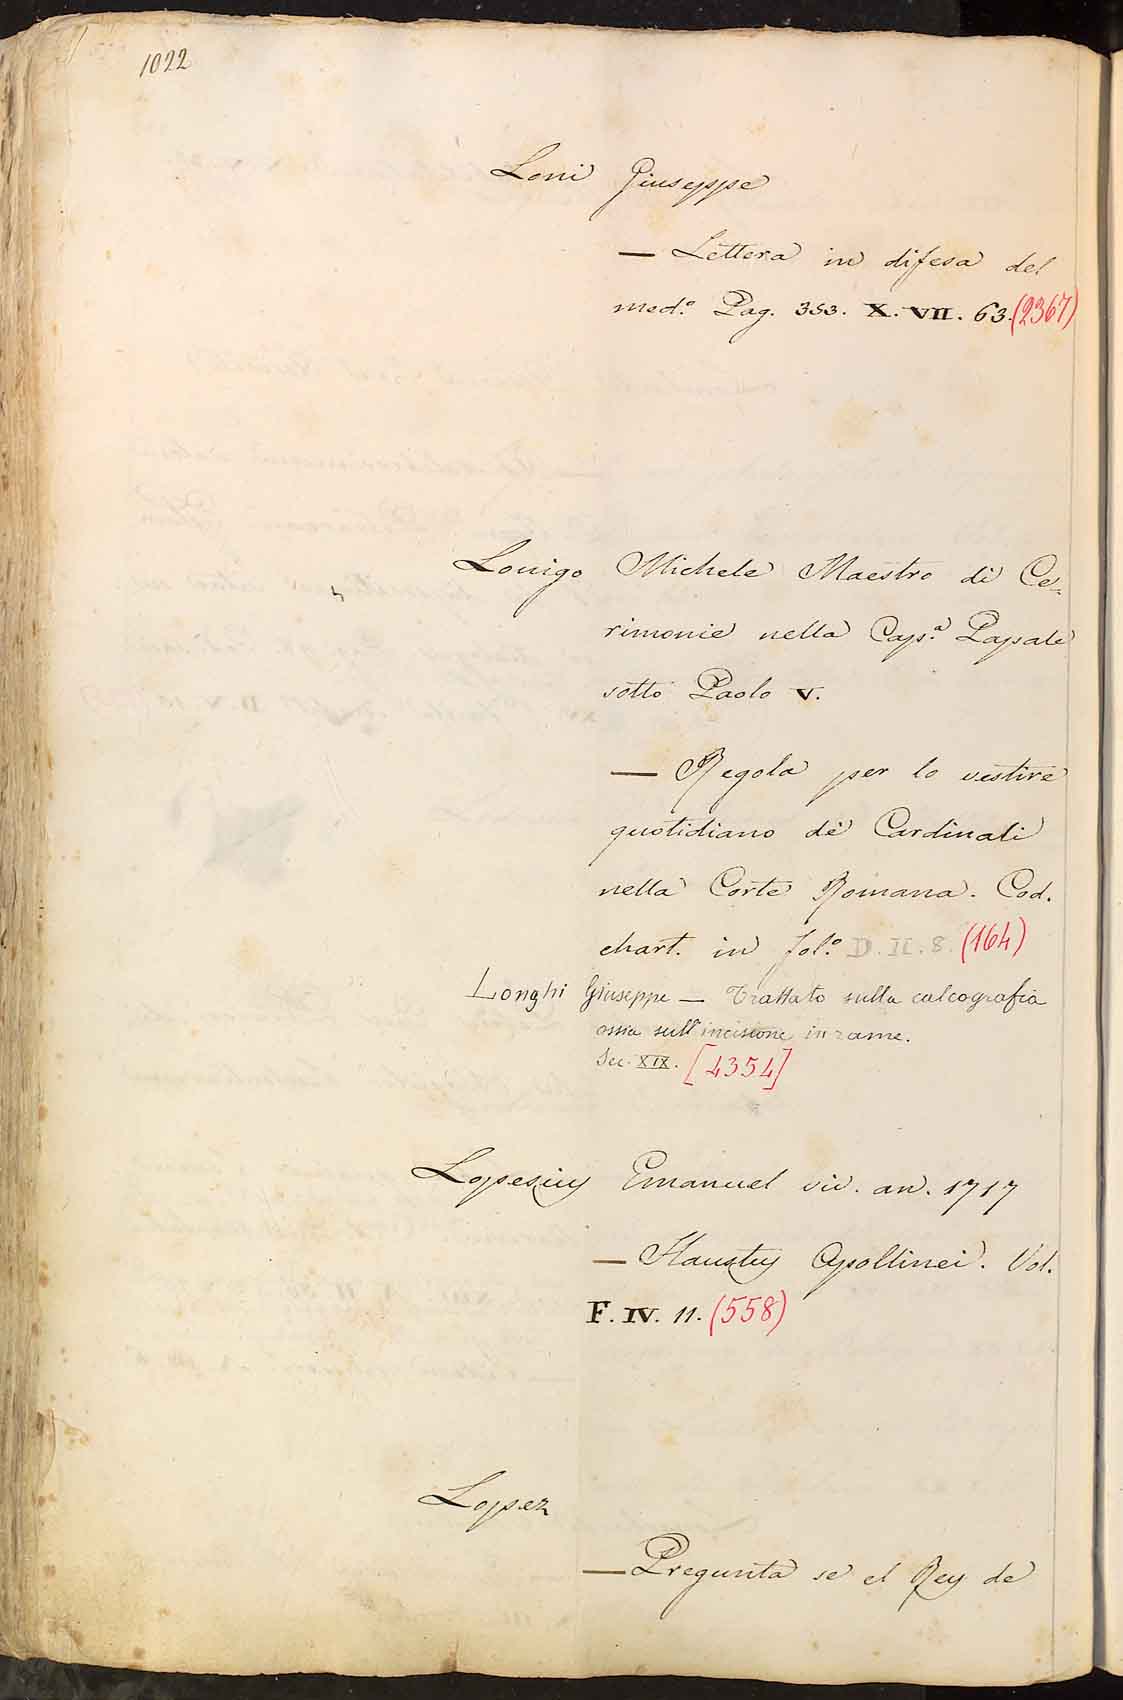 1022
Loni Giuseppe
— Lettera in difesa del
med.º Pag. 353. X. VII. 63. (2367)
Lonigo Michele Maestro di Ce-
rimonie nella Cap.ª Papale
sotto Paolo V.
— Regola per lo vestire
quotidiano de' Cardinali
nella Corte Romana. Cod.
chart. in fol.º D. II. 8. (164)
Longhi Giuseppe — Trattato sulla calcografia
ossia sull'incisione in rame.
Sec. XIX. [4354]
Lopesius Emanuel viv. an. 1717
— Haustus Apollinei. Vol.
F. IV. 11. (558)
Lopez
— Pregunta se el Rey de